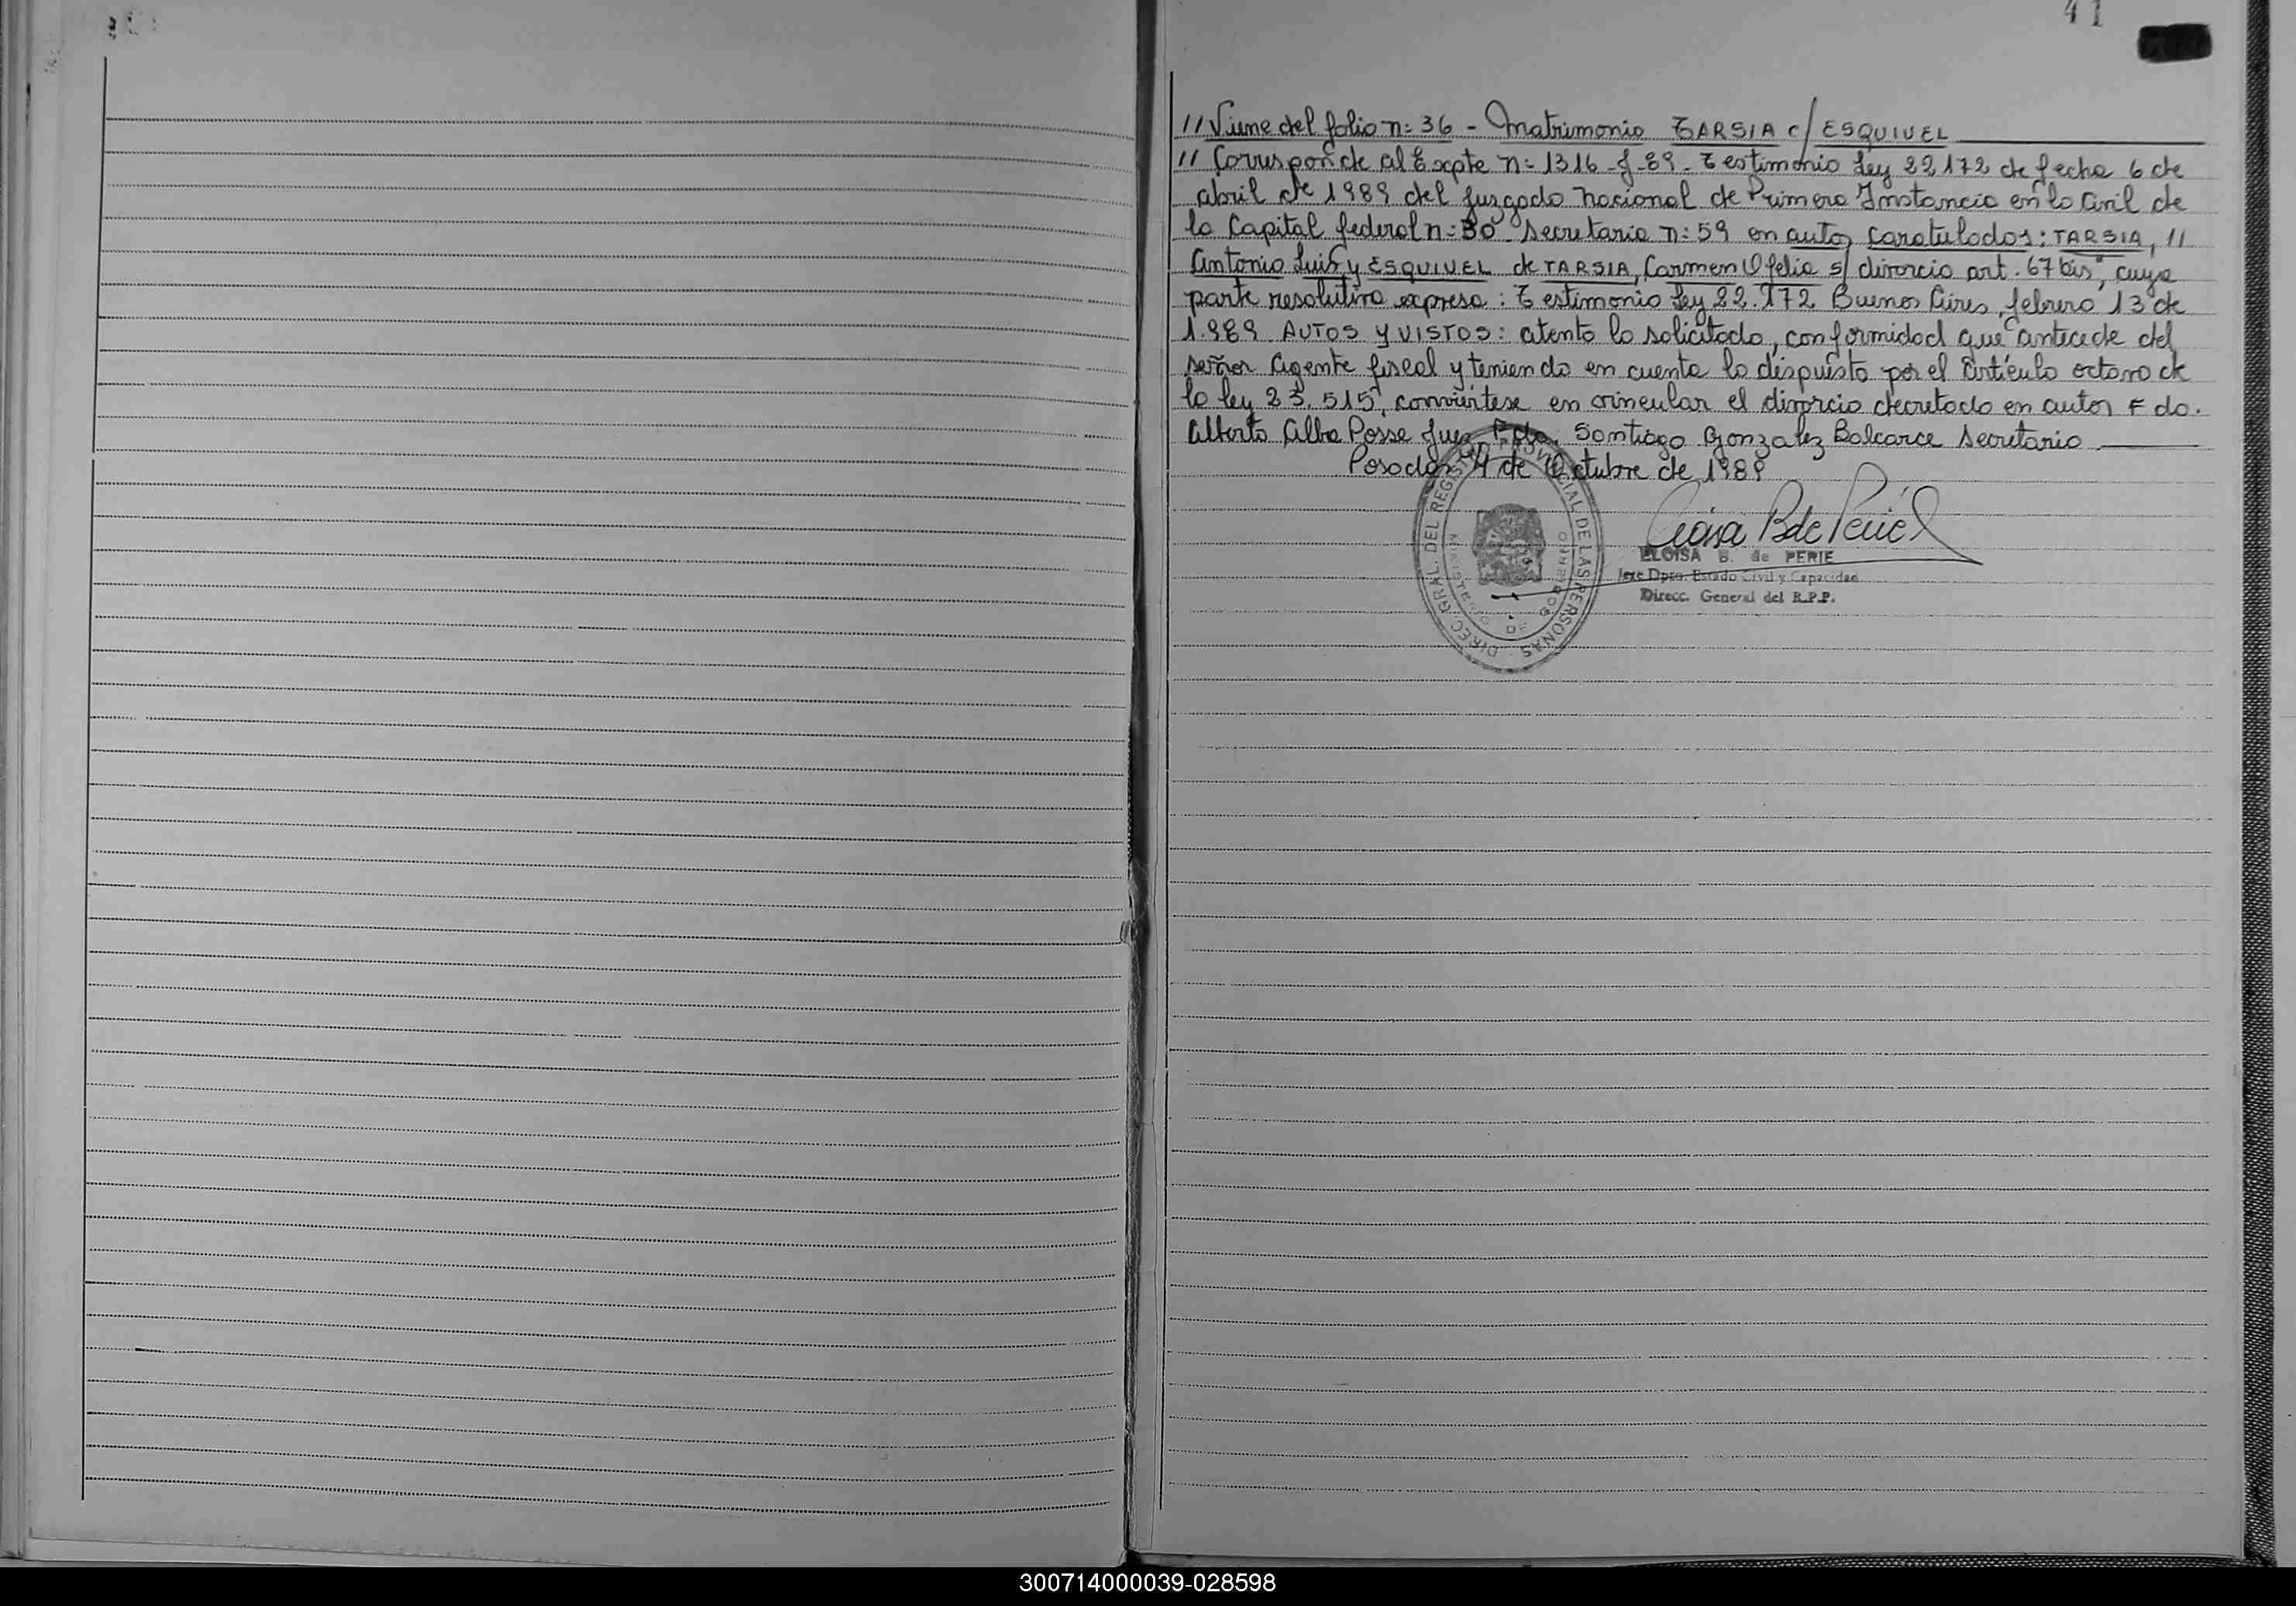 41
// Viene del folio n= 36 - Matrimonio TARSIA c/ ESQUIVEL
// Corresponde al Expte n= 1316 - J - 89 - Testimonio Ley 22172 de fecha 6 de
abril de 1989 del Juzgado Nacional de Primera Instancia en lo Civil de
la Capital federal n= 30 Secretaria n= 59 en autos caratulados: TARSIA, //
Antonio Luis y ESQUIVEL de TARSIA, Carmen Ofelia s/ divorcio art. 67 bis", cuya
parte resolutiva expresa: Testimonio Ley 22.172 Buenos Aires, febrero 13 de
1.989 AUTOS Y VISTOS: atento lo solicitado, conformidad que antecede del
señor Agente fiscal y teniendo en cuenta lo dispuesto por el Artículo octavo de
la ley 23.515, conviértese en vincular el divorcio decretado en autos Fdo.
Alberto Alba Posse Juez Fdo. Santiago Gonzalez Balcarce Secretario
Posadas de Octubre de 1989
ELOISA B. de PERIE
Jefe Dpto. Estado Civil y Capacidad
Direcc. General del R.P.P.
DIREC. GRAL. DEL REGISTRO PROVINCIAL DE LAS PERSONAS
MINISTERIO DE GOBIERNO
300714000039-028598